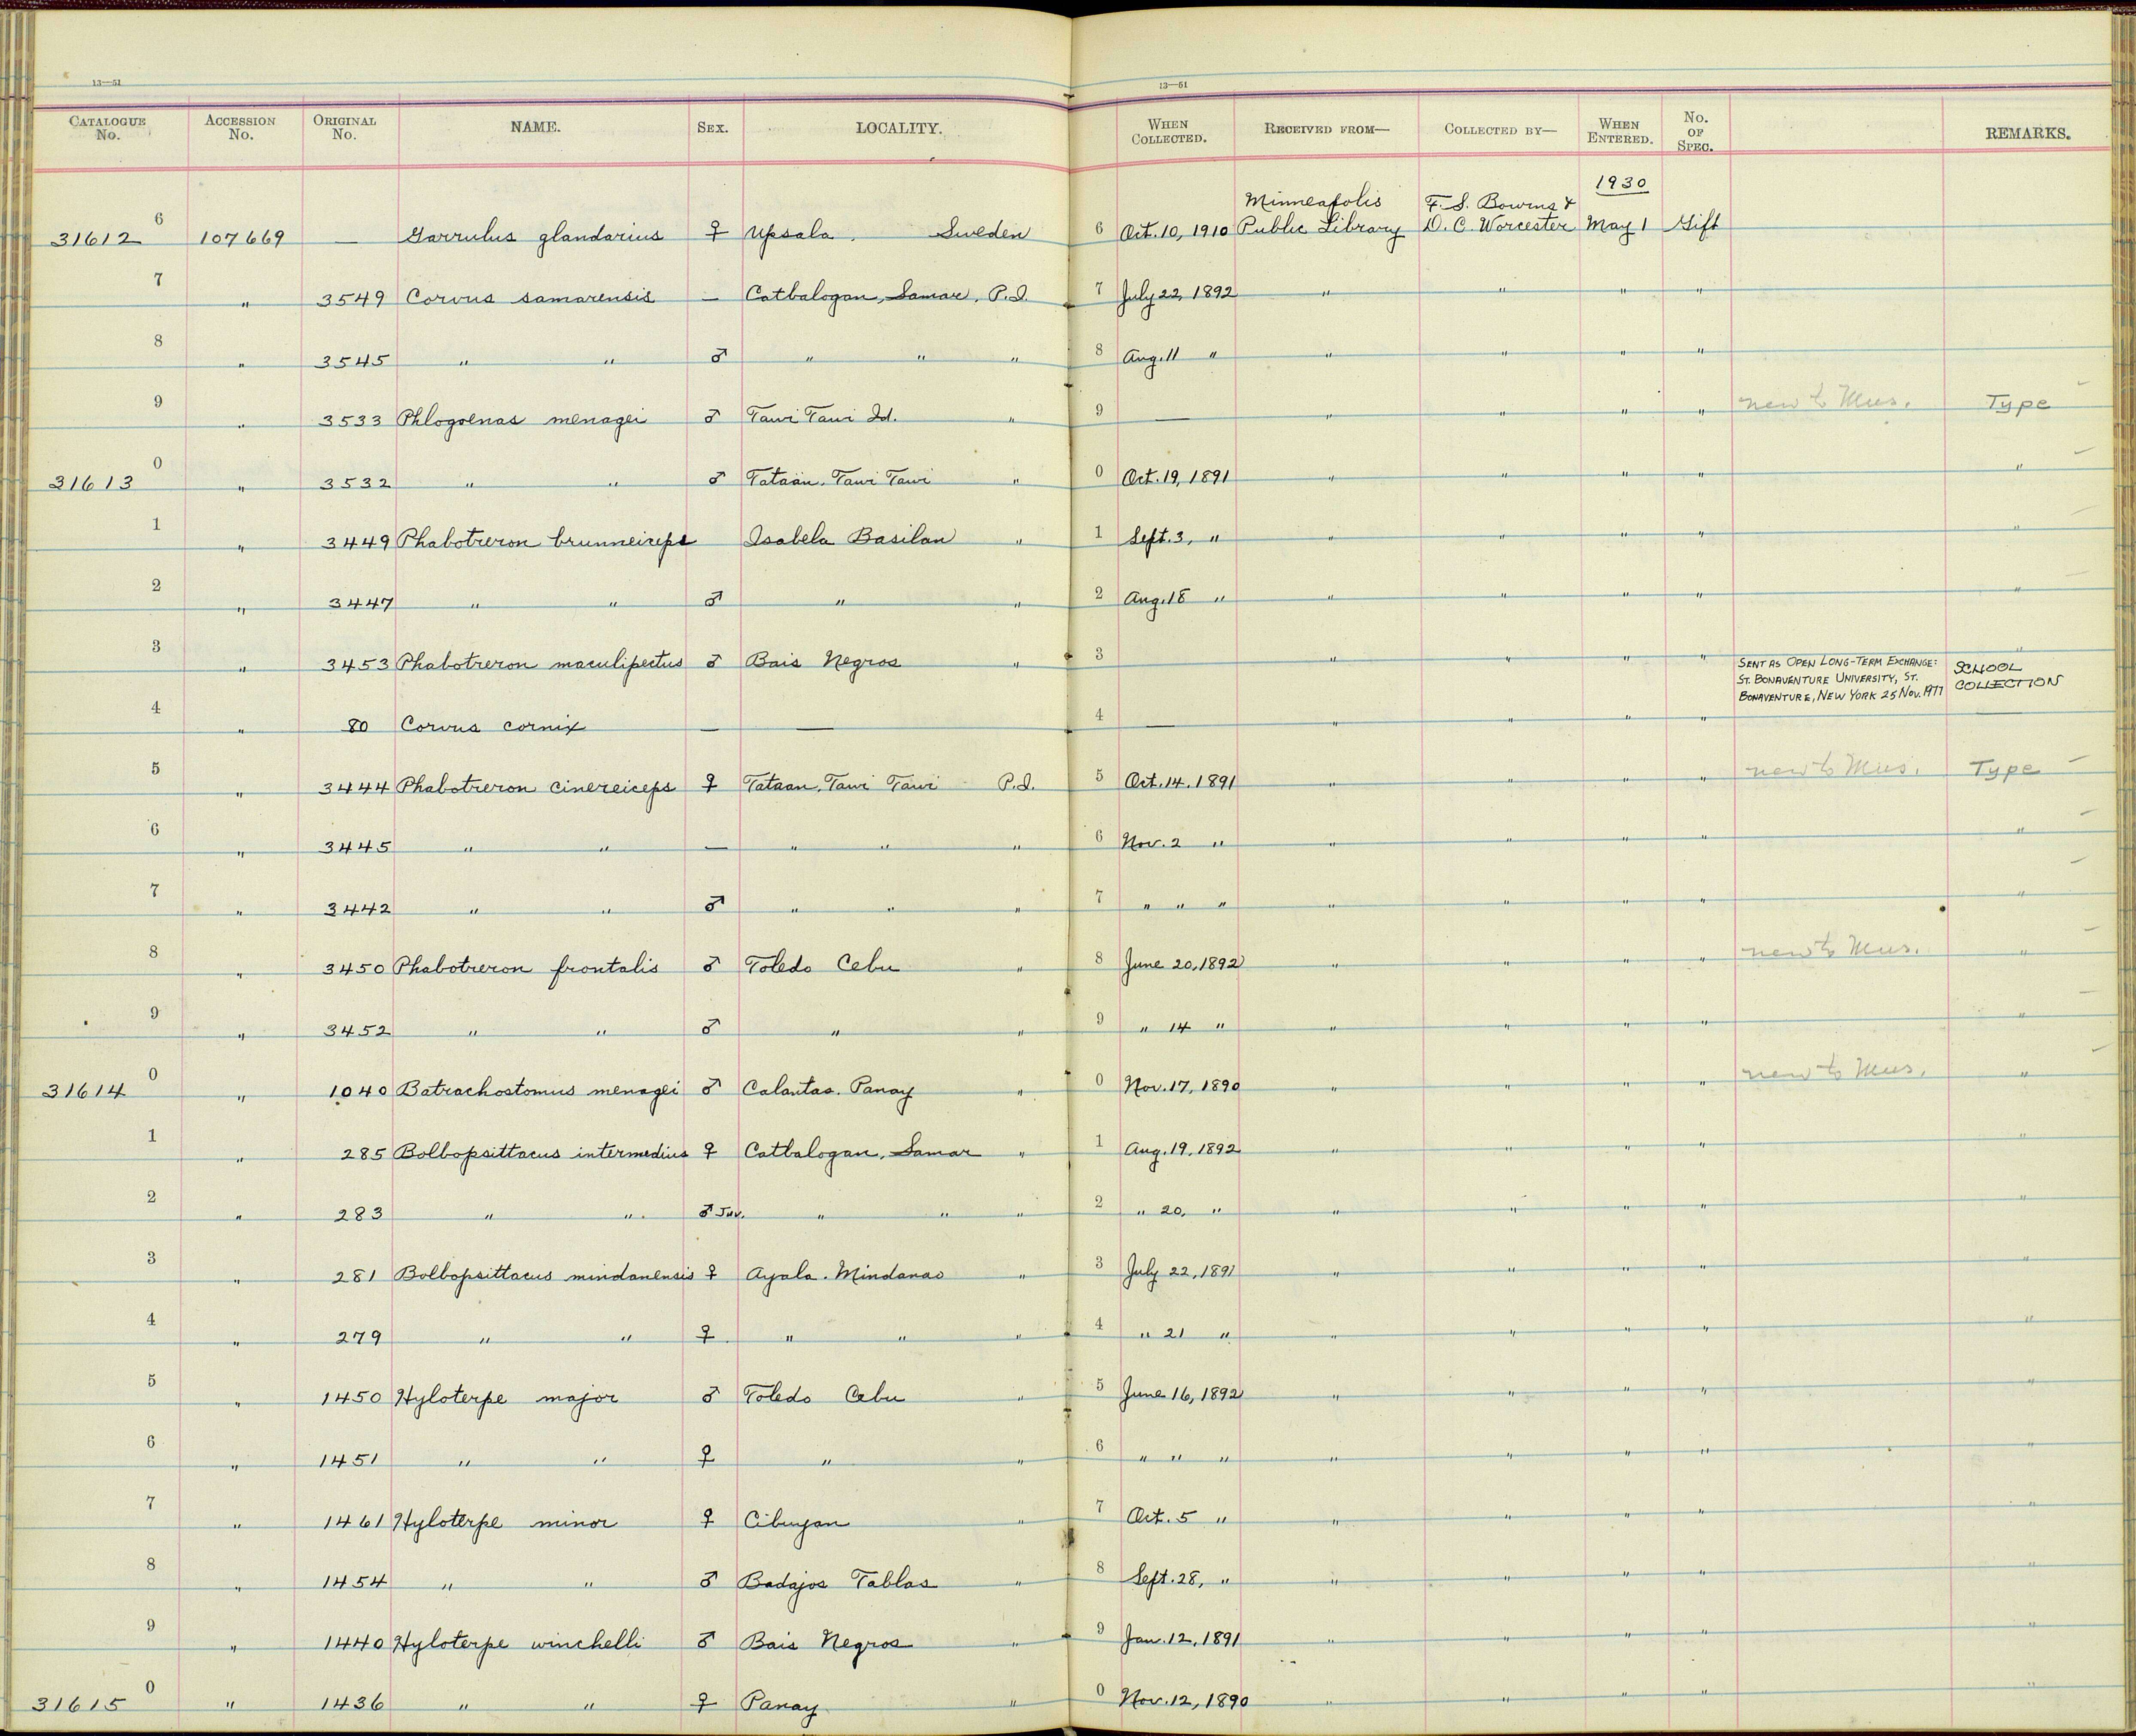 13—51
13—51
CATALOGUE No. ACCESSION No. ORIGINAL No. NAME. SEX. LOCALITY. WHEN COLLECTED. RECEIVED FROM— COLLECTED BY— WHEN ENTERED. No. OF SPEC. REMARKS.
1930
Minneapolis F. S. Bourns &
31612 6 107669 — Garrulus glandarius ♀ Upsala, Sweden 6 Oct. 10, 1910 Public Library D. C. Worcester May 1 Gift
7 " 3549 Corvus samarensis — Catbalogan, Samar, P.I. 7 July 22, 1892 " " " "
8 " 3545 " " ♂ " " " 8 Aug. 11 " " " " "
9 " 3533 Phlogoenas menagei ♂ Tawi Tawi Id. " 9 — " " " " new to Mus. Type
31613 0 " 3532 " " ♂ Tataan, Tawi Tawi " 0 Oct. 19, 1891 " " " " "
1 " 3449 Phabotreron brunneiceps Isabela Basilan " 1 Sept. 3, " " " " " "
2 " 3447 " " ♂ " " 2 Aug. 18 " " " " " "
3 " 3453 Phabotreron maculipectus ♂ Bais Negros " 3 " " " " "
SENT AS OPEN LONG-TERM EXCHANGE: SCHOOL
ST. BONAVENTURE UNIVERSITY, ST. COLLECTION
BONAVENTURE, NEW YORK 25 NOV. 1977
4 " 80 Corvus cornix — — 4 — " " " " —
5 " 3444 Phabotreron cinereiceps ♀ Tataan, Tawi Tawi P.I. 5 Oct. 14, 1891 " " " " new to Mus. Type
6 " 3445 " " — " " " 6 Nov. 2 " " " " " "
7 " 3442 " " ♂ " " " 7 " " " " " " " "
8 " 3450 Phabotreron frontalis ♂ Toledo Cebu " 8 June 20, 1892 " " " " new to Mus. "
9 " 3452 " " ♂ " " 9 " 14 " " " " " "
31614 0 " 1040 Batrachostomus menagei ♂ Calantas. Panay " 0 Nov. 17, 1890 " " " " new to Mus. "
1 " 285 Bolbopsittacus intermedius ♀ Catbalogan, Samar " 1 Aug. 19, 1892 " " " " "
2 " 283 " " ♂ Juv. " " " 2 " 20, " " " " " "
3 " 281 Bolbopsittacus mindanensis ♀ Ayala. Mindanao " 3 July 22, 1891 " " " " "
4 " 279 " " ♀ " " " 4 " 21 " " " " " "
5 " 1450 Hyloterpe major ♂ Toledo Cebu " 5 June 16, 1892 " " " " "
6 " 1451 " " ♀ " " 6 " " " " " " " "
7 " 1461 Hyloterpe minor ♀ Cibuyan " 7 Oct. 5 " " " " " "
8 " 1454 " " ♂ Badajos Tablas " 8 Sept. 28, " " " " " "
9 " 1440 Hyloterpe winchelli ♂ Bais Negros " 9 Jan. 12, 1891 " " " " "
31615 0 " 1436 " " ♀ Panay " 0 Nov. 12, 1890 " " " " "